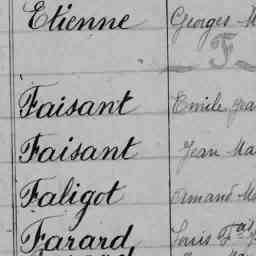 Etienne Georges M
F
Faisant Emile Jea
Faisant Jean Ma
Faligot Armand M
Farard Louis Fal